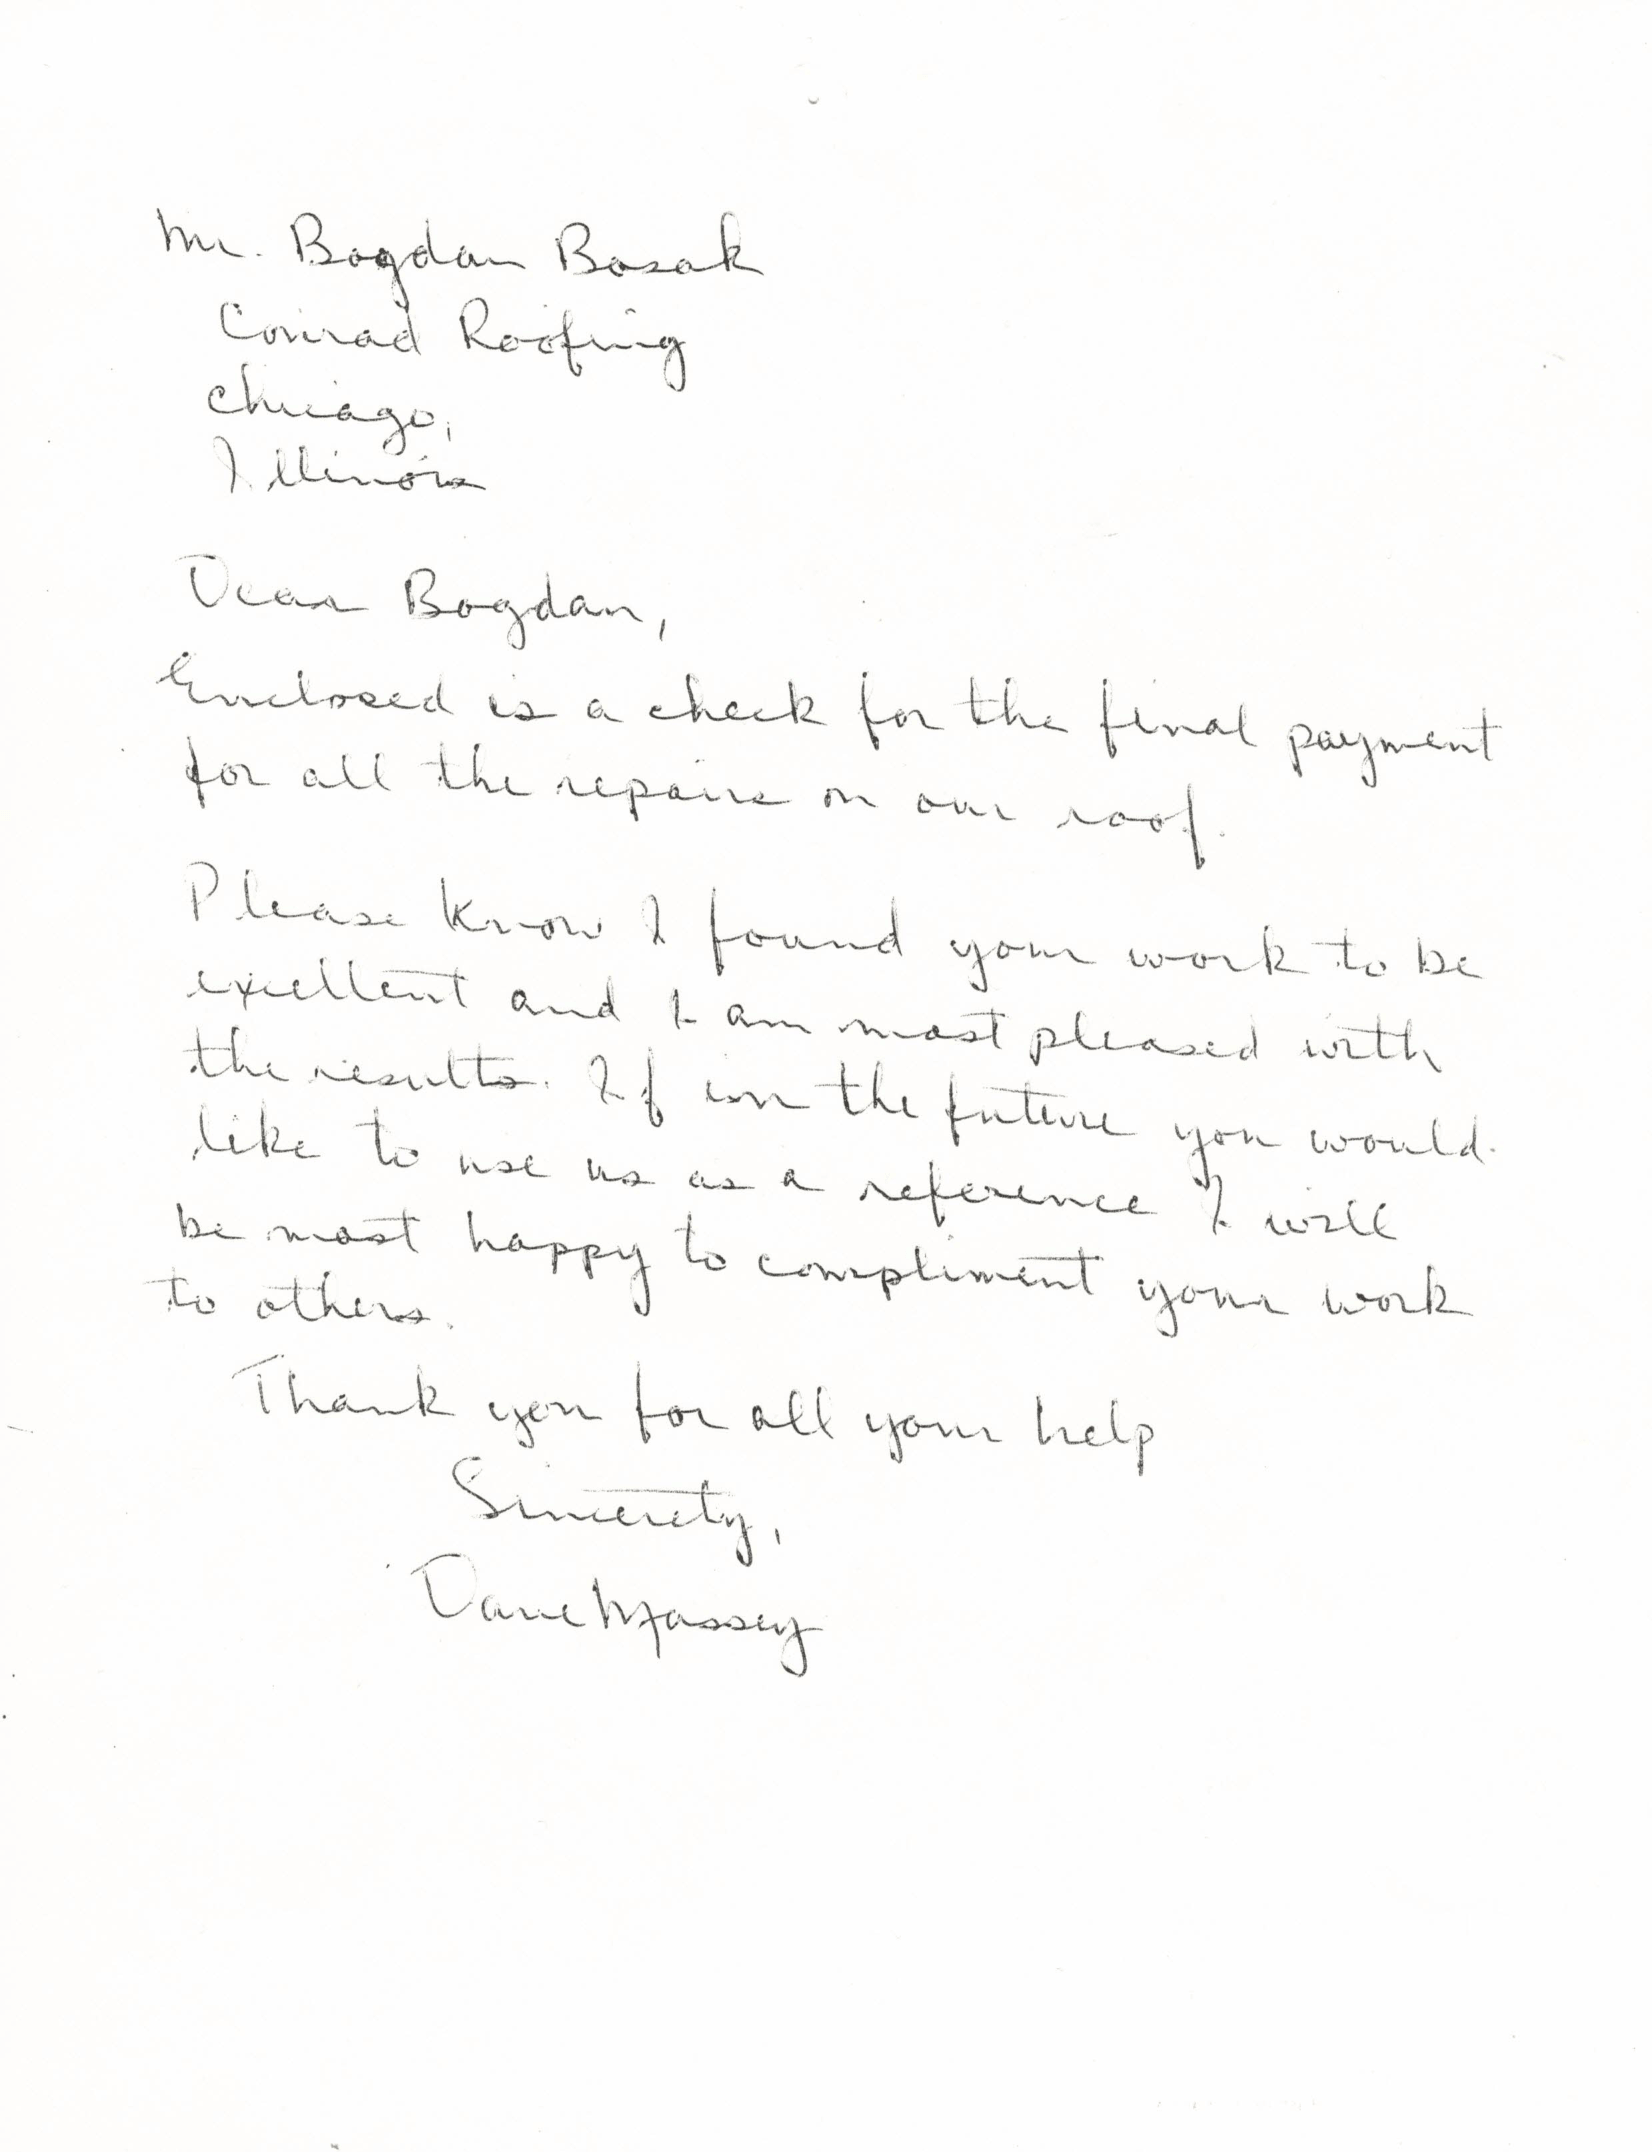 Mr. Bogdan Bosak
Conrad Roofing
Chicago,
Illinois
Dear Bogdan,
Enclosed is a check for the final payment
for all the repairs on our roof.
Please know I found your work to be
excellent and I am most pleased with
the results. If in the future you would
like to use us as a reference I will
be most happy to compliment your work
to others.
Thank you for all your help
Sincerely,
Dave Massey